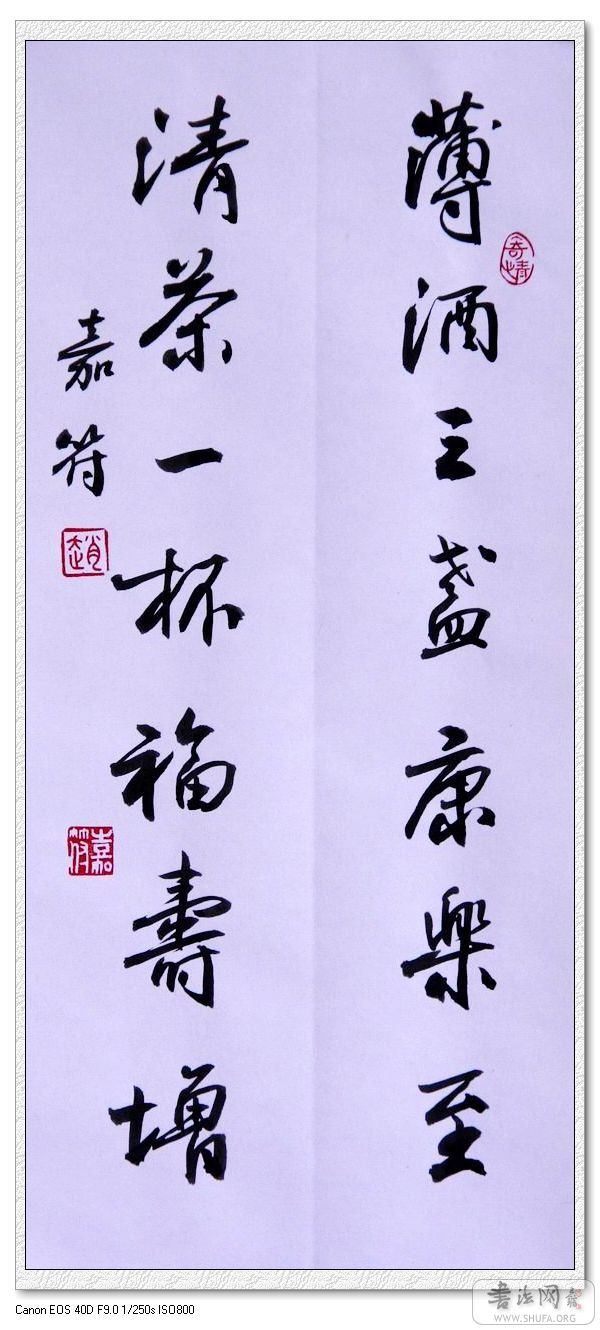 薄酒三盏康樂至
清茶一杯福壽增
嘉符
趙
嘉符
Canon EOS 40D F9.0 1/250s ISO800
書法网
WWW.SHUFA.ORG